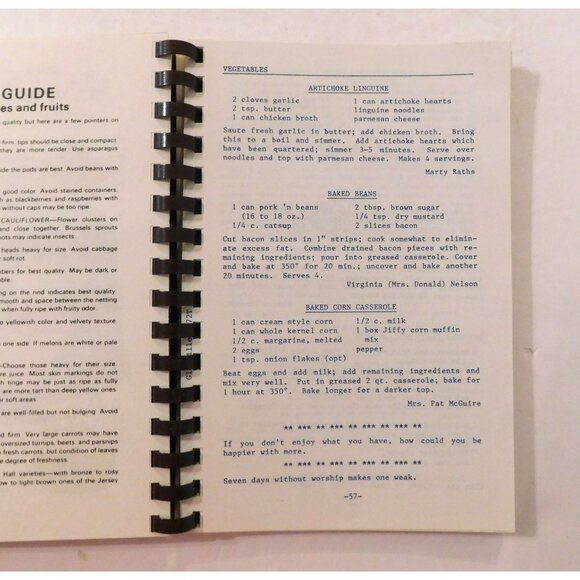 GUIDE
es and fruits
quality but here are a few pointers on
firm, tips should be close and compact.
they are more tender. Use asparagus
ide the pods are best. Avoid beans with
good color. Avoid stained containers.
h as blackberries and raspberries with
without caps may be too ripe.
CAULIFLOWER—Flower clusters on
and close together. Brussels sprouts
ots may indicate insects.
heads heavy for size. Avoid cabbage
soft rot.
bers for best quality. May be dark or
ble.
g on the rind indicates best quality.
mooth and space between the netting
when fully ripe with fruity odor
o yellowish color and velvety texture
one side. If melons are white or pale
Choose those heavy for their size.
re juice. Most skin markings do not
h tinge may be just as ripe as fully
are more tart than deep yellow ones.
or soft areas
are well-filled but not bulging. Avoid
d firm. Very large carrots may have
oversized turnips, beets, and parsnips
fresh carrots, but condition of leaves
e degree of freshness.
Hall varieties—with bronze to rosy
ow to light-brown ones of the Jersey
VEGETABLES
ARTICHOKE LINGUINE
2 cloves garlic 1 can artichoke hearts
2 tsp. butter linguine noodles
1 can chicken broth parmesan cheese
Saute fresh garlic in butter; add chicken broth. Bring
this to a boil and simmer. Add artichoke hearts which
have been quartered; simmer 3-5 minutes. Serve over
noodles and top with parmesan cheese. Makes 4 servings.
Marty Raths
BAKED BEANS
1 can pork 'n beans 2 tbsp. brown sugar
(16 to 18 oz.) 1/4 tsp. dry mustard
1/4 c. catsup 2 slices bacon
Cut bacon slices in 1" strips; cook somewhat to elimin-
ate excess fat. Combine drained bacon pieces with re-
maining ingredients; pour into greased casserole. Cover
and bake at 350° for 20 min.; uncover and bake another
20 minutes. Serves 4.
Virginia (Mrs. Donald) Nelson
BAKED CORN CASSEROLE
1 can cream style corn 1/2 c. milk
1 can whole kernel corn 1 box Jiffy corn muffin
1/2 c. margarine, melted mix
2 eggs pepper
1 tsp. onion flakes (opt)
Beat eggs and add milk; add remaining ingredients and
mix very well. Put in greased 2 qt. casserole; bake for
1 hour at 350°. Bake longer for a darker top.
Mrs. Pat McGuire
** *** ** *** ** *** ** *** ** ***
If you don't enjoy what you have, how could you be
happier with more.
** *** ** *** ** *** ** *** ** ***
Seven days without worship makes one weak.
-57-